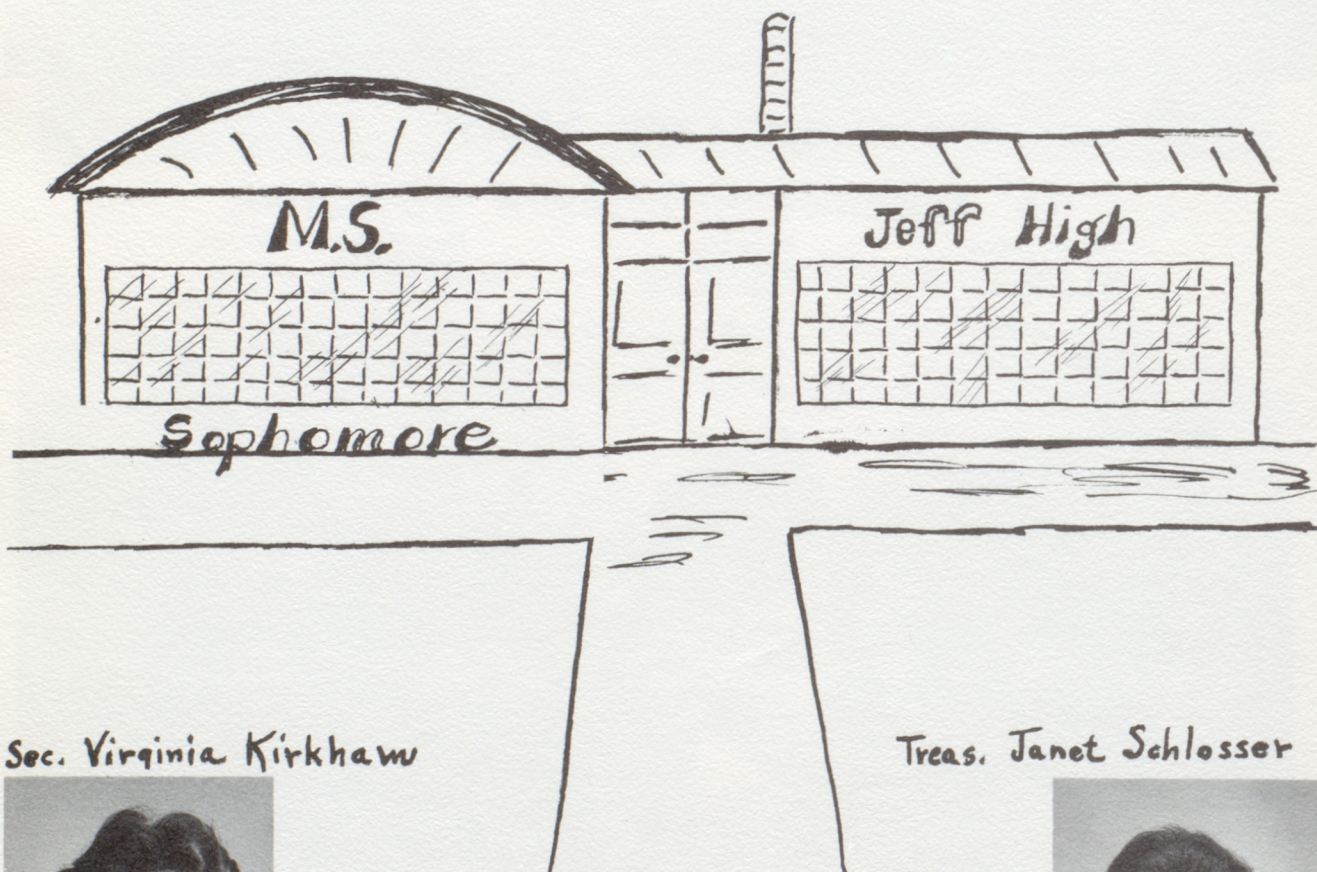 M.S.
Jeff High
Sophomore
Sec. Virginia Kirkham
Treas. Janet Schlosser